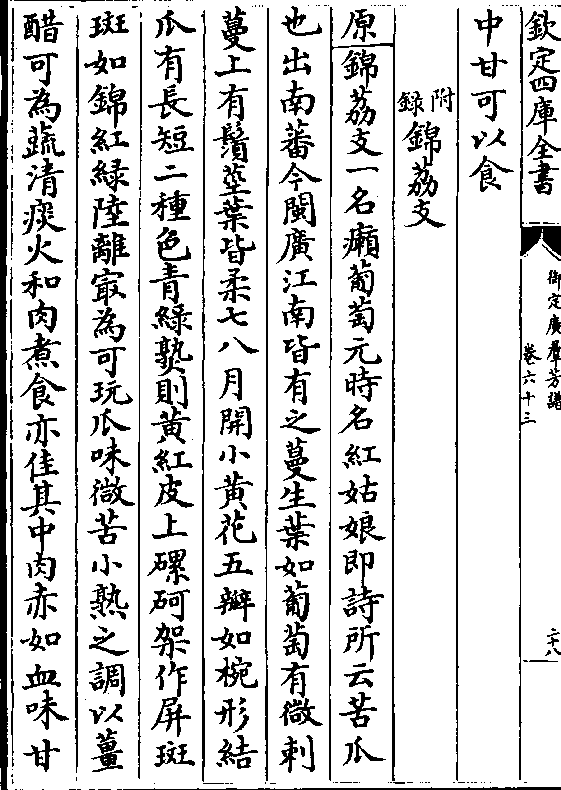 欽定四庫全書
御定廣羣芳譜
卷六十三
二十八
中甘可以食
附錄錦荔支
原錦荔支一名癩葡萄元時名紅姑娘即詩所云苦瓜
也出南蕃今閩廣江南皆有之蔓生葉如葡萄有微刺
蔓上有鬚莖葉皆柔七八月開小黄花五瓣如椀形結
瓜有長短二種色青綠熟則黄紅皮上磥砢架作屏斑
斑如錦紅綠陸離㝡為可玩瓜味微苦小熟之調以薑
醋可為蔬清痰火和肉煮食亦佳其中肉赤如血味甘